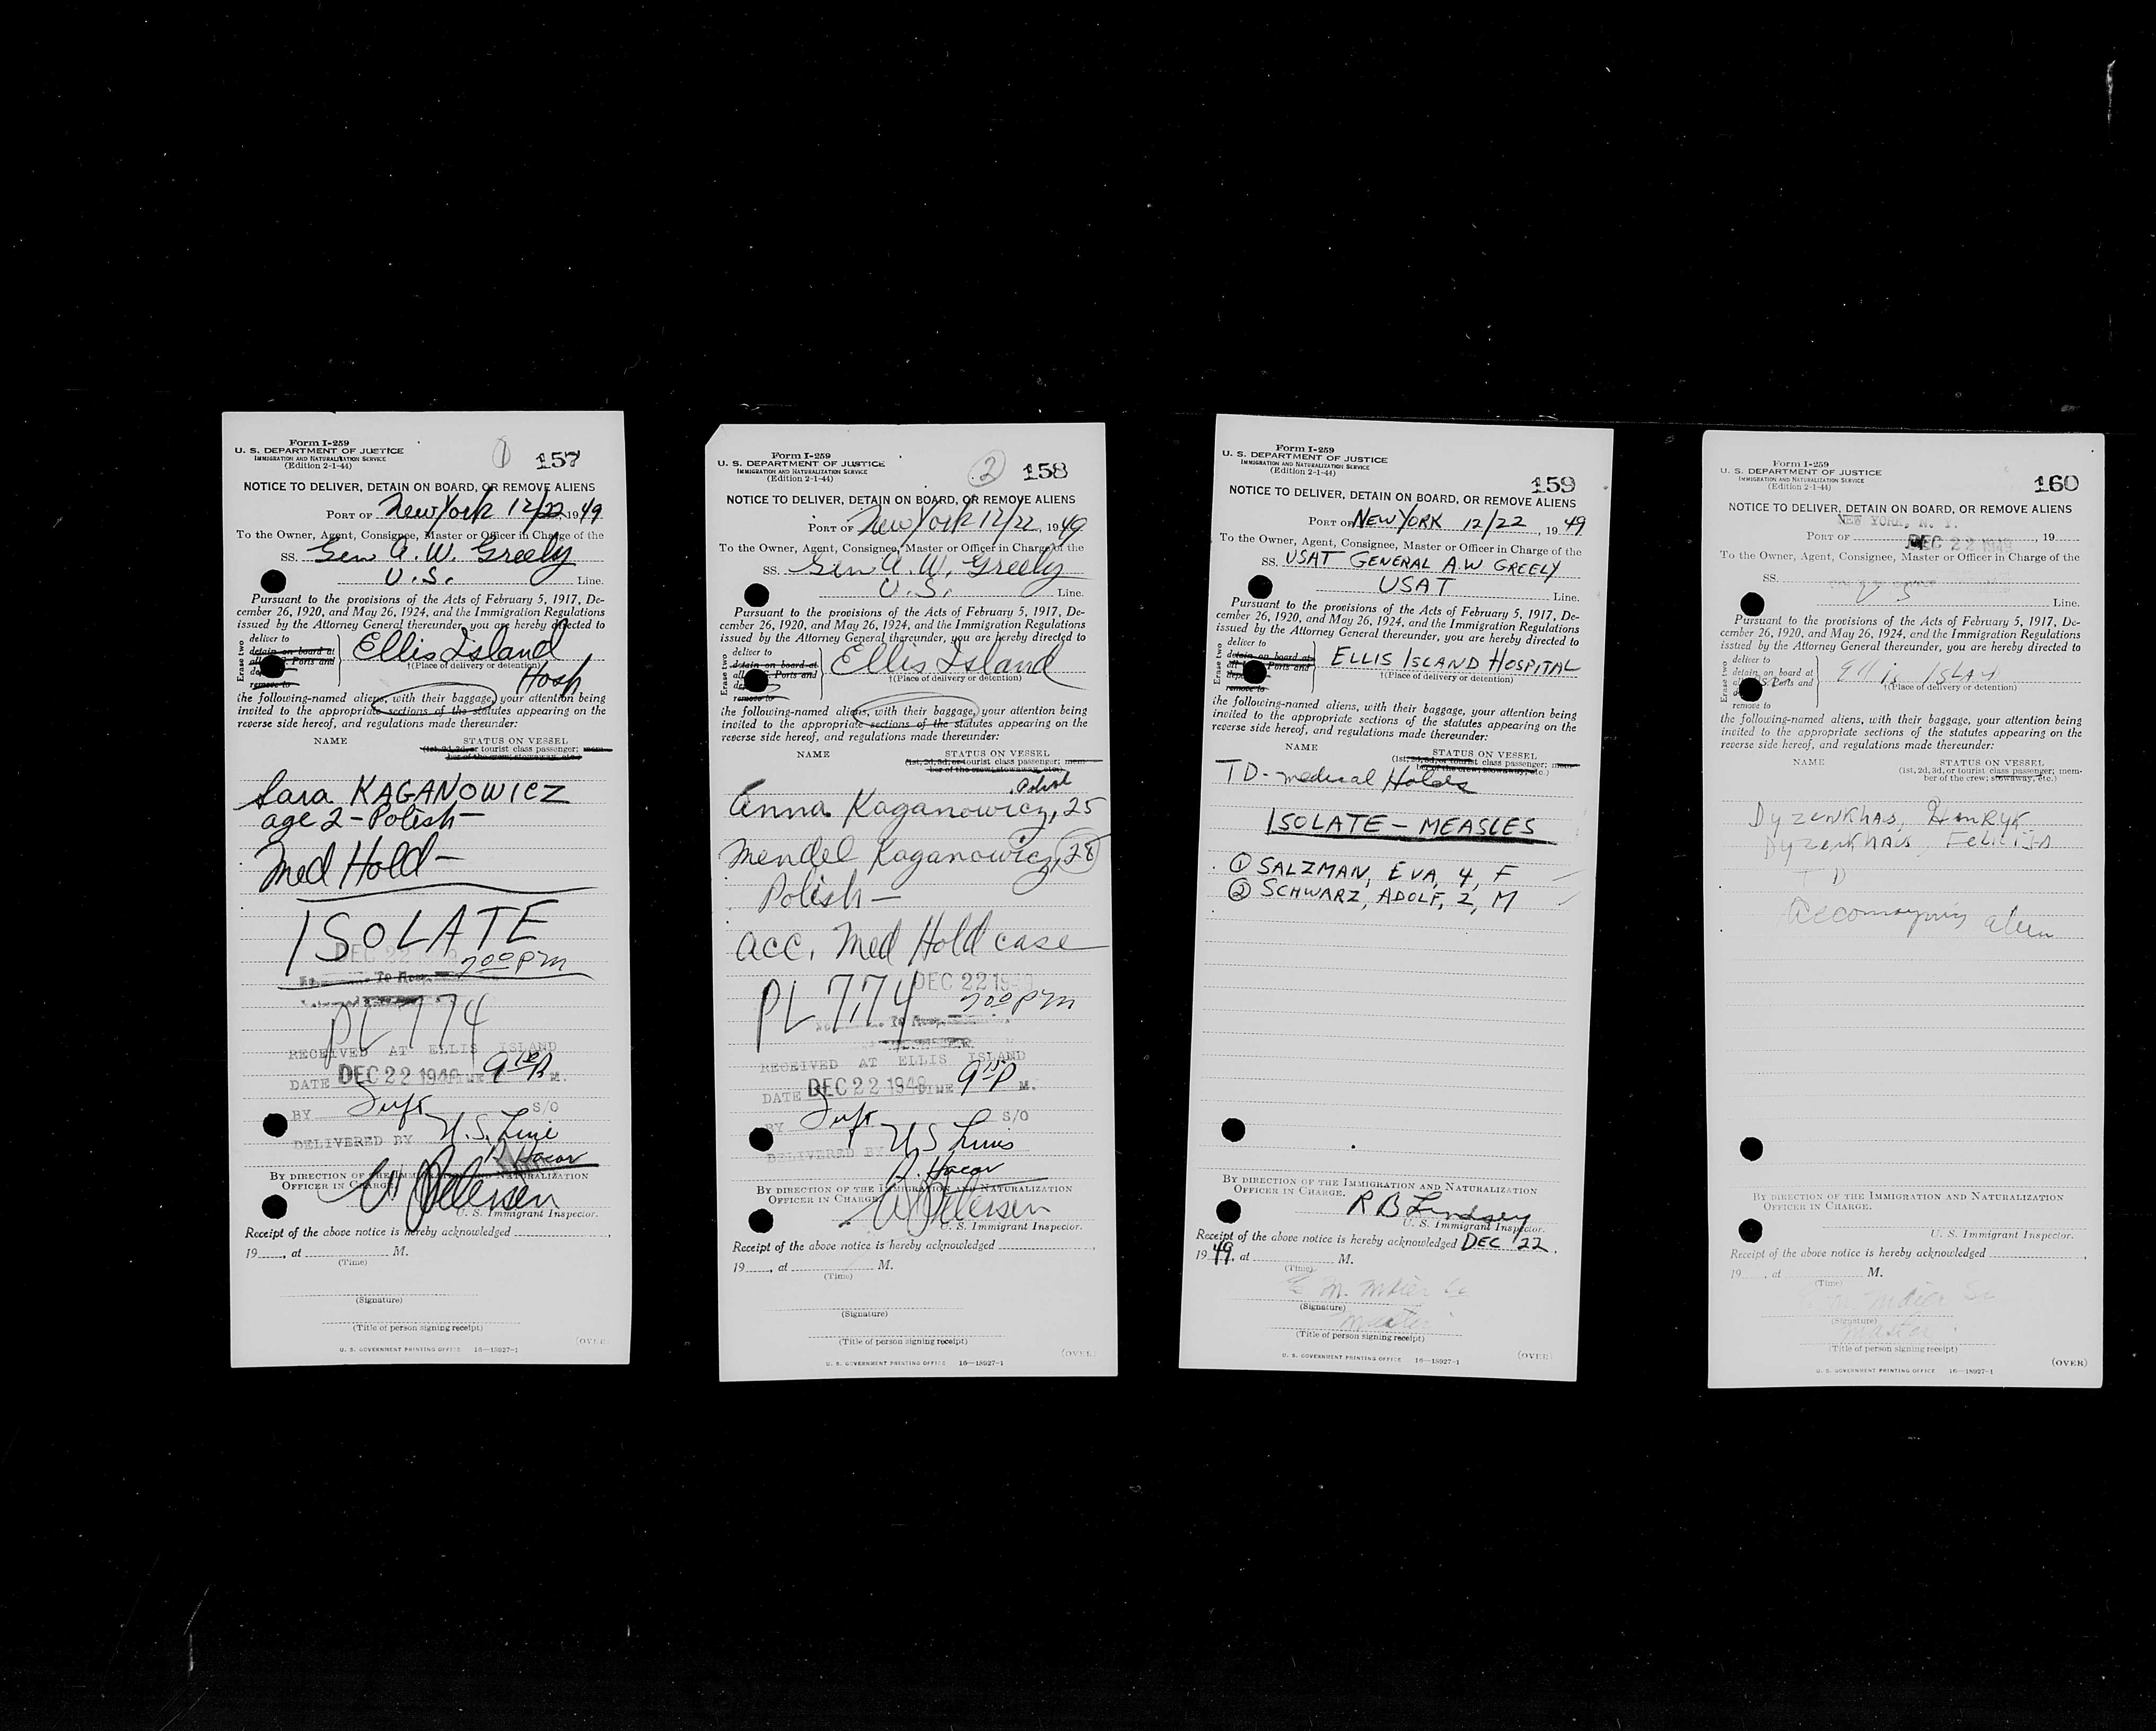 Form I-259
U. S. DEPARTMENT OF JUSTICE
IMMIGRATION AND NATURALIZATION SERVICE
(Edition 2-1-44)
1 157
NOTICE TO DELIVER, DETAIN ON BOARD, OR REMOVE ALIENS
PORT OF New York 12/22, 1949
To the Owner, Agent, Consignee, Master or Officer in Charge of the
SS. Gen A. W. Greely
U.S. Line.
Pursuant to the provisions of the Acts of February 5, 1917, De-
cember 26, 1920, and May 26, 1924, and the Immigration Regulations
issued by the Attorney General thereunder, you are hereby directed to
Erase two
deliver to
detain on board at
Ports and
remove to
Ellis Island
†(Place of delivery or detention)
Hosp
the following-named aliens, with their baggage, your attention being
invited to the appropriate sections of the statutes appearing on the
reverse side hereof, and regulations made thereunder:
NAME STATUS ON VESSEL
(1st, 2d, 3d, or tourist class passenger; mem-
ber of the crew; stowaway, etc.)
Sara KAGANOWICZ
age 2 - Polish -
Med Hold -
ISOLATE
DEC 22 1949
7 00 PM
To Hosp.
PL 774
RECEIVED AT ELLIS ISLAND
DATE DEC 22 1949 TIME 9 15 P M.
BY S/O
DELIVERED BY U.S. Line
BY DIRECTION OF THE IMMIGRATION AND NATURALIZATION
OFFICER IN CHARGE.
U. S. Immigrant Inspector.
Receipt of the above notice is hereby acknowledged
19 , at M.
(Time)
(Signature)
(Title of person signing receipt)
(OVER)
U. S. GOVERNMENT PRINTING OFFICE 16—18927-1
Form I-259
U. S. DEPARTMENT OF JUSTICE
IMMIGRATION AND NATURALIZATION SERVICE
(Edition 2-1-44)
2 158
NOTICE TO DELIVER, DETAIN ON BOARD, OR REMOVE ALIENS
PORT OF New York 12/22, 1949
To the Owner, Agent, Consignee, Master or Officer in Charge of the
SS. Gen A. W. Greely
U.S. Line.
Pursuant to the provisions of the Acts of February 5, 1917, De-
cember 26, 1920, and May 26, 1924, and the Immigration Regulations
issued by the Attorney General thereunder, you are hereby directed to
Erase two
deliver to
detain on board at
Ports and
remove to
Ellis Island
†(Place of delivery or detention)
the following-named aliens, with their baggage, your attention being
invited to the appropriate sections of the statutes appearing on the
reverse side hereof, and regulations made thereunder:
NAME STATUS ON VESSEL
(1st, 2d, 3d, or tourist class passenger; mem-
ber of the crew; stowaway, etc.)
Polish
Anna Kaganowicz, 25
Mendel Kaganowicz, 28
Polish -
acc. Med Hold case
PL 774 DEC 22 1949
7 00 PM
To Hosp.
RECEIVED AT ELLIS ISLAND
DATE DEC 22 1949 TIME 9 15 P M.
BY S/O
DELIVERED BY U S Lines
BY DIRECTION OF THE IMMIGRATION AND NATURALIZATION
OFFICER IN CHARGE
U. S. Immigrant Inspector.
Receipt of the above notice is hereby acknowledged
19 , at M.
(Time)
(Signature)
(Title of person signing receipt)
(OVER)
U. S. GOVERNMENT PRINTING OFFICE 16—18927-1
Form I-259
U. S. DEPARTMENT OF JUSTICE
IMMIGRATION AND NATURALIZATION SERVICE
(Edition 2-1-44)
159
NOTICE TO DELIVER, DETAIN ON BOARD, OR REMOVE ALIENS
PORT OF NEW YORK 12/22, 1949
To the Owner, Agent, Consignee, Master or Officer in Charge of the
SS. USAT GENERAL A.W GREELY
USAT Line.
Pursuant to the provisions of the Acts of February 5, 1917, De-
cember 26, 1920, and May 26, 1924, and the Immigration Regulations
issued by the Attorney General thereunder, you are hereby directed to
Erase two
deliver to
detain on board at
Ports and
remove to
ELLIS ISLAND HOSPITAL
†(Place of delivery or detention)
the following-named aliens, with their baggage, your attention being
invited to the appropriate sections of the statutes appearing on the
reverse side hereof, and regulations made thereunder:
NAME STATUS ON VESSEL
(1st, 2d, 3d, or tourist class passenger; mem-
ber of the crew; stowaway, etc.)
TD - medical Holds
ISOLATE - MEASLES
① SALZMAN, EVA, 4, F
② SCHWARZ, ADOLF, 2, M
BY DIRECTION OF THE IMMIGRATION AND NATURALIZATION
OFFICER IN CHARGE.
R B Lindsey
U. S. Immigrant Inspector.
Receipt of the above notice is hereby acknowledged DEC 22,
1949, at M.
(Time)
(Signature)
Master
(Title of person signing receipt)
(OVER)
U. S. GOVERNMENT PRINTING OFFICE 16—18927-1
Form I-259
U. S. DEPARTMENT OF JUSTICE
IMMIGRATION AND NATURALIZATION SERVICE
(Edition 2-1-44)
160
NOTICE TO DELIVER, DETAIN ON BOARD, OR REMOVE ALIENS
NEW YORK, N. Y.
PORT OF DEC 22 1949, 19
To the Owner, Agent, Consignee, Master or Officer in Charge of the
SS.
U S Line.
Pursuant to the provisions of the Acts of February 5, 1917, De-
cember 26, 1920, and May 26, 1924, and the Immigration Regulations
issued by the Attorney General thereunder, you are hereby directed to
Erase two
deliver to
detain on board at
Ports and
remove to
†(Place of delivery or detention)
the following-named aliens, with their baggage, your attention being
invited to the appropriate sections of the statutes appearing on the
reverse side hereof, and regulations made thereunder:
NAME STATUS ON VESSEL
(1st, 2d, 3d, or tourist class passenger; mem-
ber of the crew; stowaway, etc.)
Dyzenkhas, HenRyk
Dyzenkhaus, FeliciJa
TD
Accompanying alien
BY DIRECTION OF THE IMMIGRATION AND NATURALIZATION
OFFICER IN CHARGE.
U. S. Immigrant Inspector.
Receipt of the above notice is hereby acknowledged
19 , at M.
(Time)
(Signature)
Master
(Title of person signing receipt)
(OVER)
U. S. GOVERNMENT PRINTING OFFICE 16—18927-1